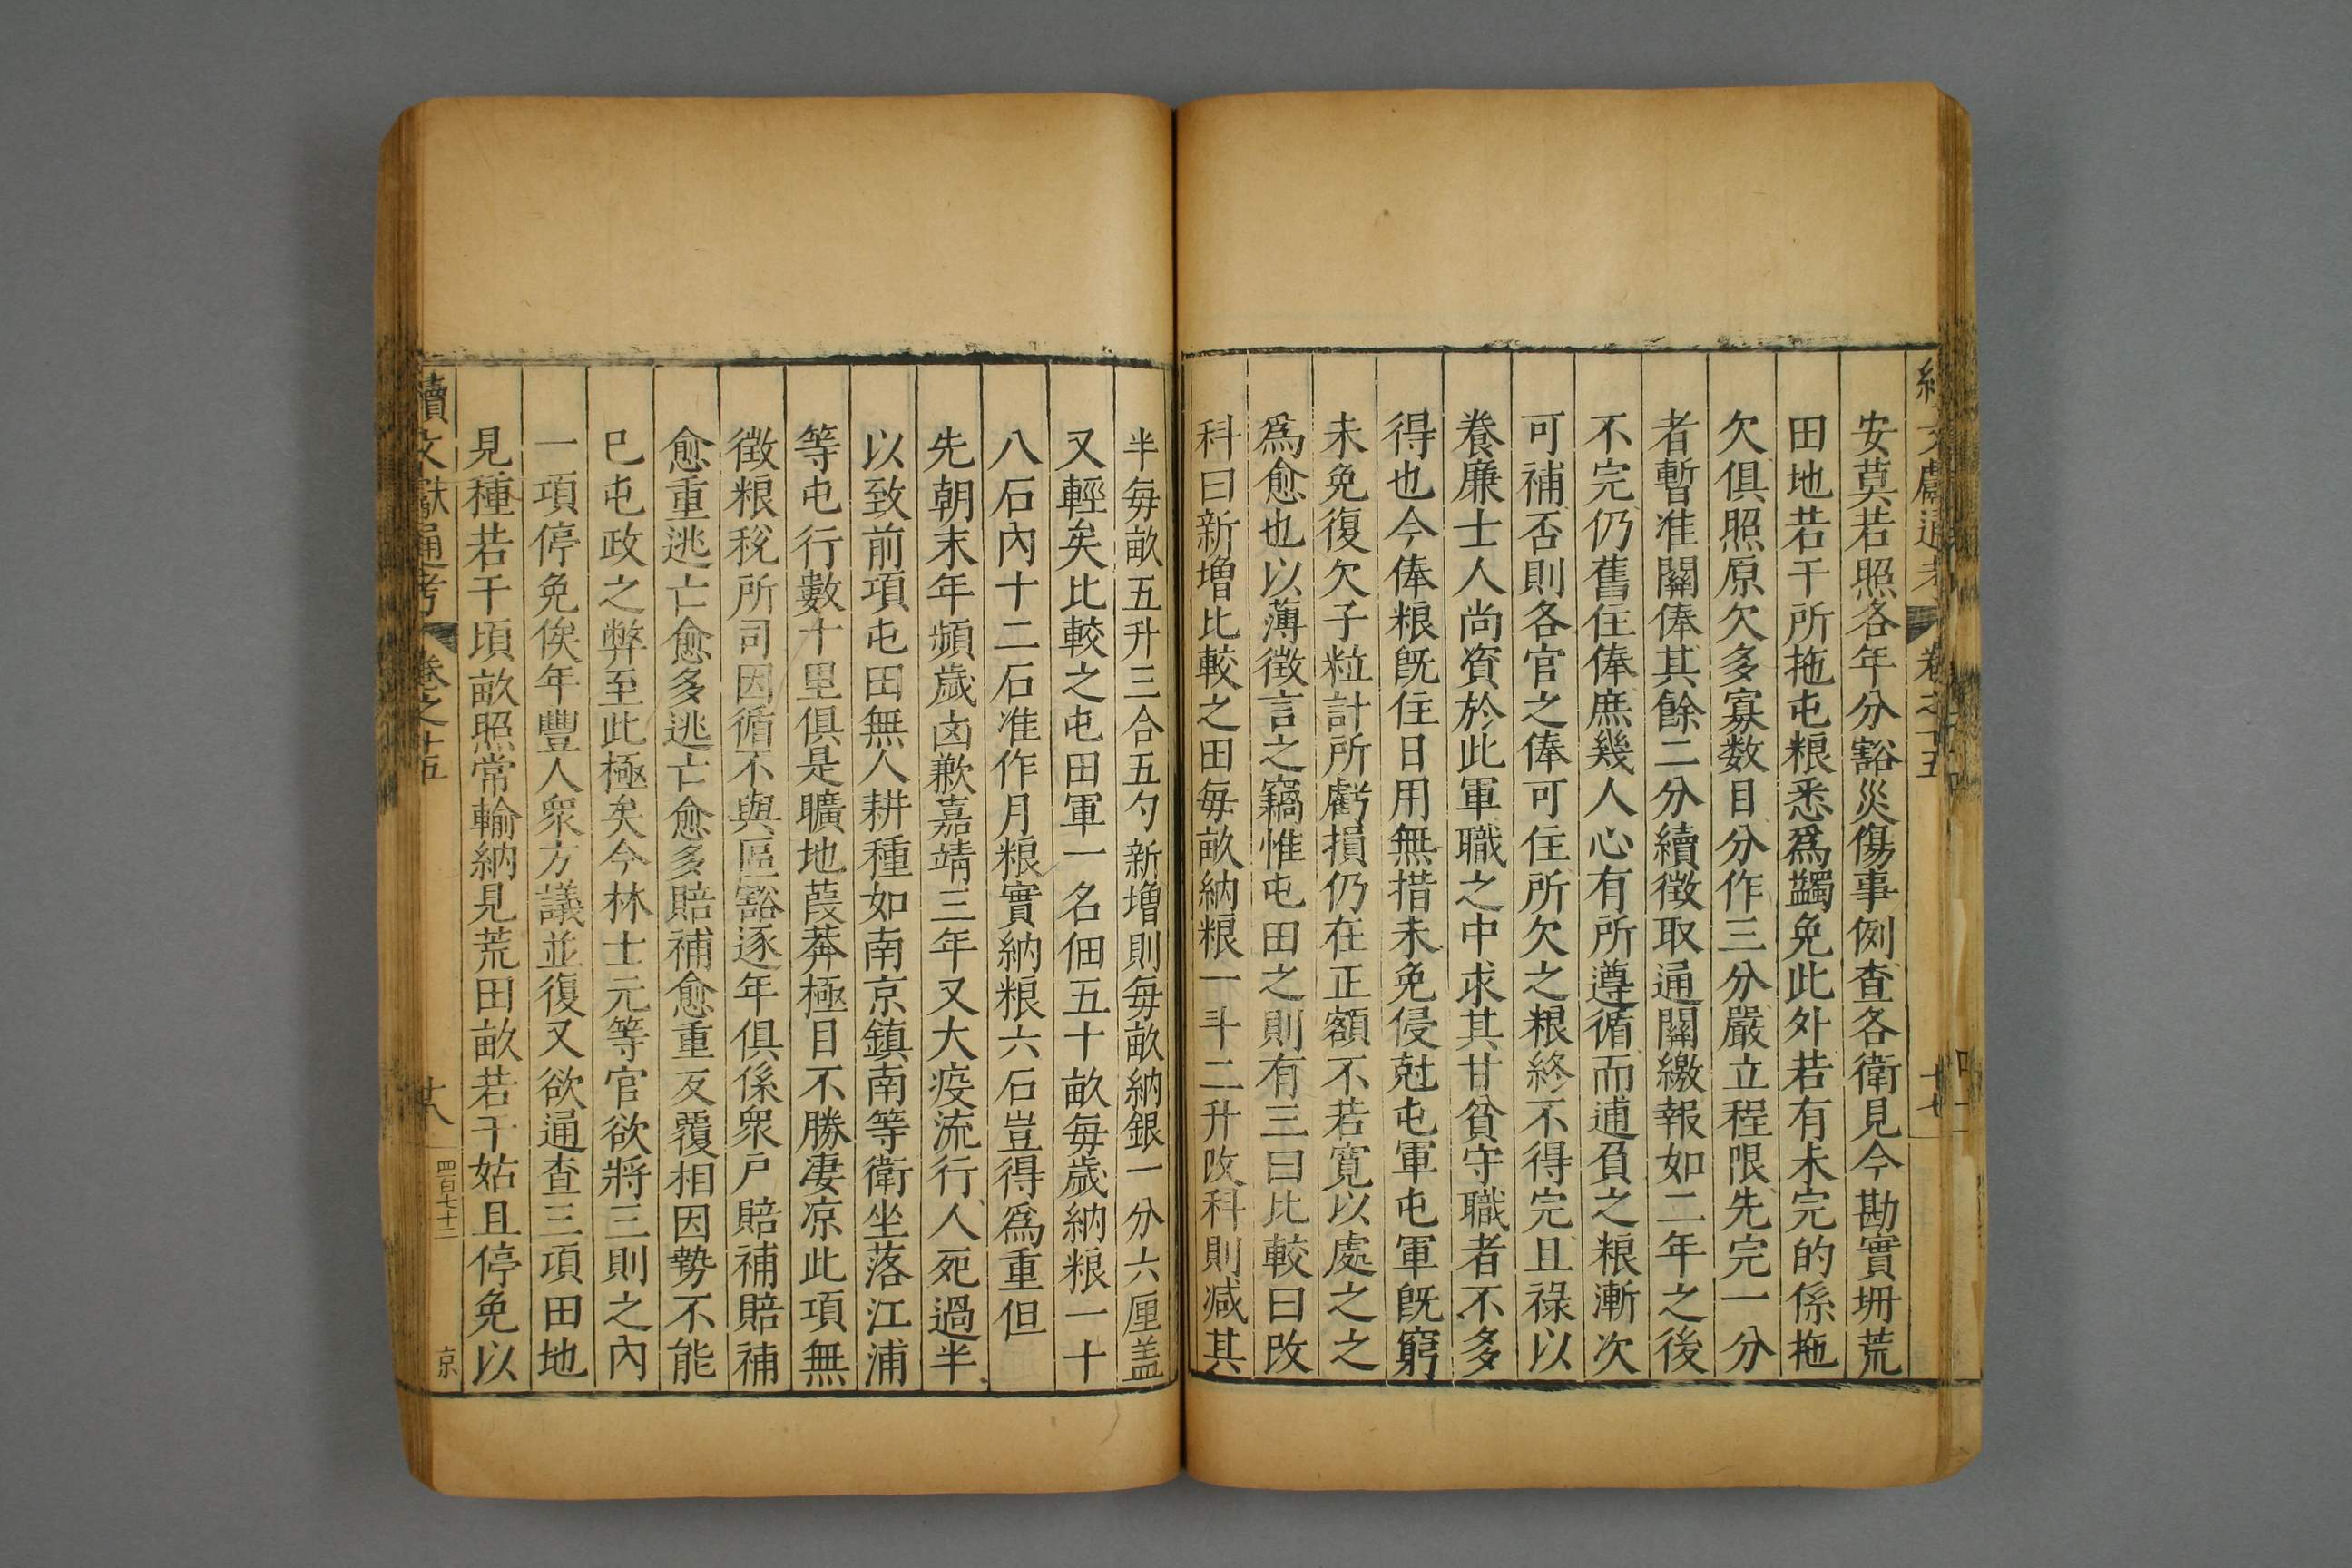 安莫若照各年分豁災傷事例查各衛見今勘實坍荒
田地若干所拖屯粮悉爲蠲免此外若有未完的係拖
欠俱照原欠多寡数目分作三分嚴立程限先完一分
者暫准關俸其餘二分續徴取通關繳報如二年之後
不完仍舊住俸庶幾人心有所遵循而逋負之粮漸次
可補否則各官之俸可住所欠之粮終不得完且祿以
養廉士人尚資於此軍職之中求其甘貧守職者不多
得也今俸粮旣住日用無措未免侵尅屯軍屯軍旣窮
未免復欠子粒計所虧損仍在正額不若寛以處之之
爲愈也以薄徴言之竊惟屯田之則有三曰比較曰改
科曰新増比較之田每畝納粮一斗二升改科則减其
半每畝五升三合五勺新増則每畝納銀一分六厘盖
又輕矣比較之屯田軍一名佃五十畝每歲納粮一十
八石內十二石准作月粮實納粮六石豈得爲重但
先朝末年頻歲凶歉嘉靖三年又大疫流行人死過半
以致前項屯田無人耕種如南京鎮南等衛坐落江浦
等屯行數十里俱是曠地葭莾極目不勝凄凉此項無
徴粮税所司因循不與區豁逐年俱係衆户賠補賠補
愈重逃亡愈多逃亡愈多賠補愈重反覆相因勢不能
已屯政之弊至此極矣今林士元等官欲將三則之內
一項停免俟年豐人衆方議並復又欲通查三項田地
見種若干頃畝照常輸納見荒田畝若干姑且停免以
續文獻通考 卷之十五 廿八 四百七十二 京